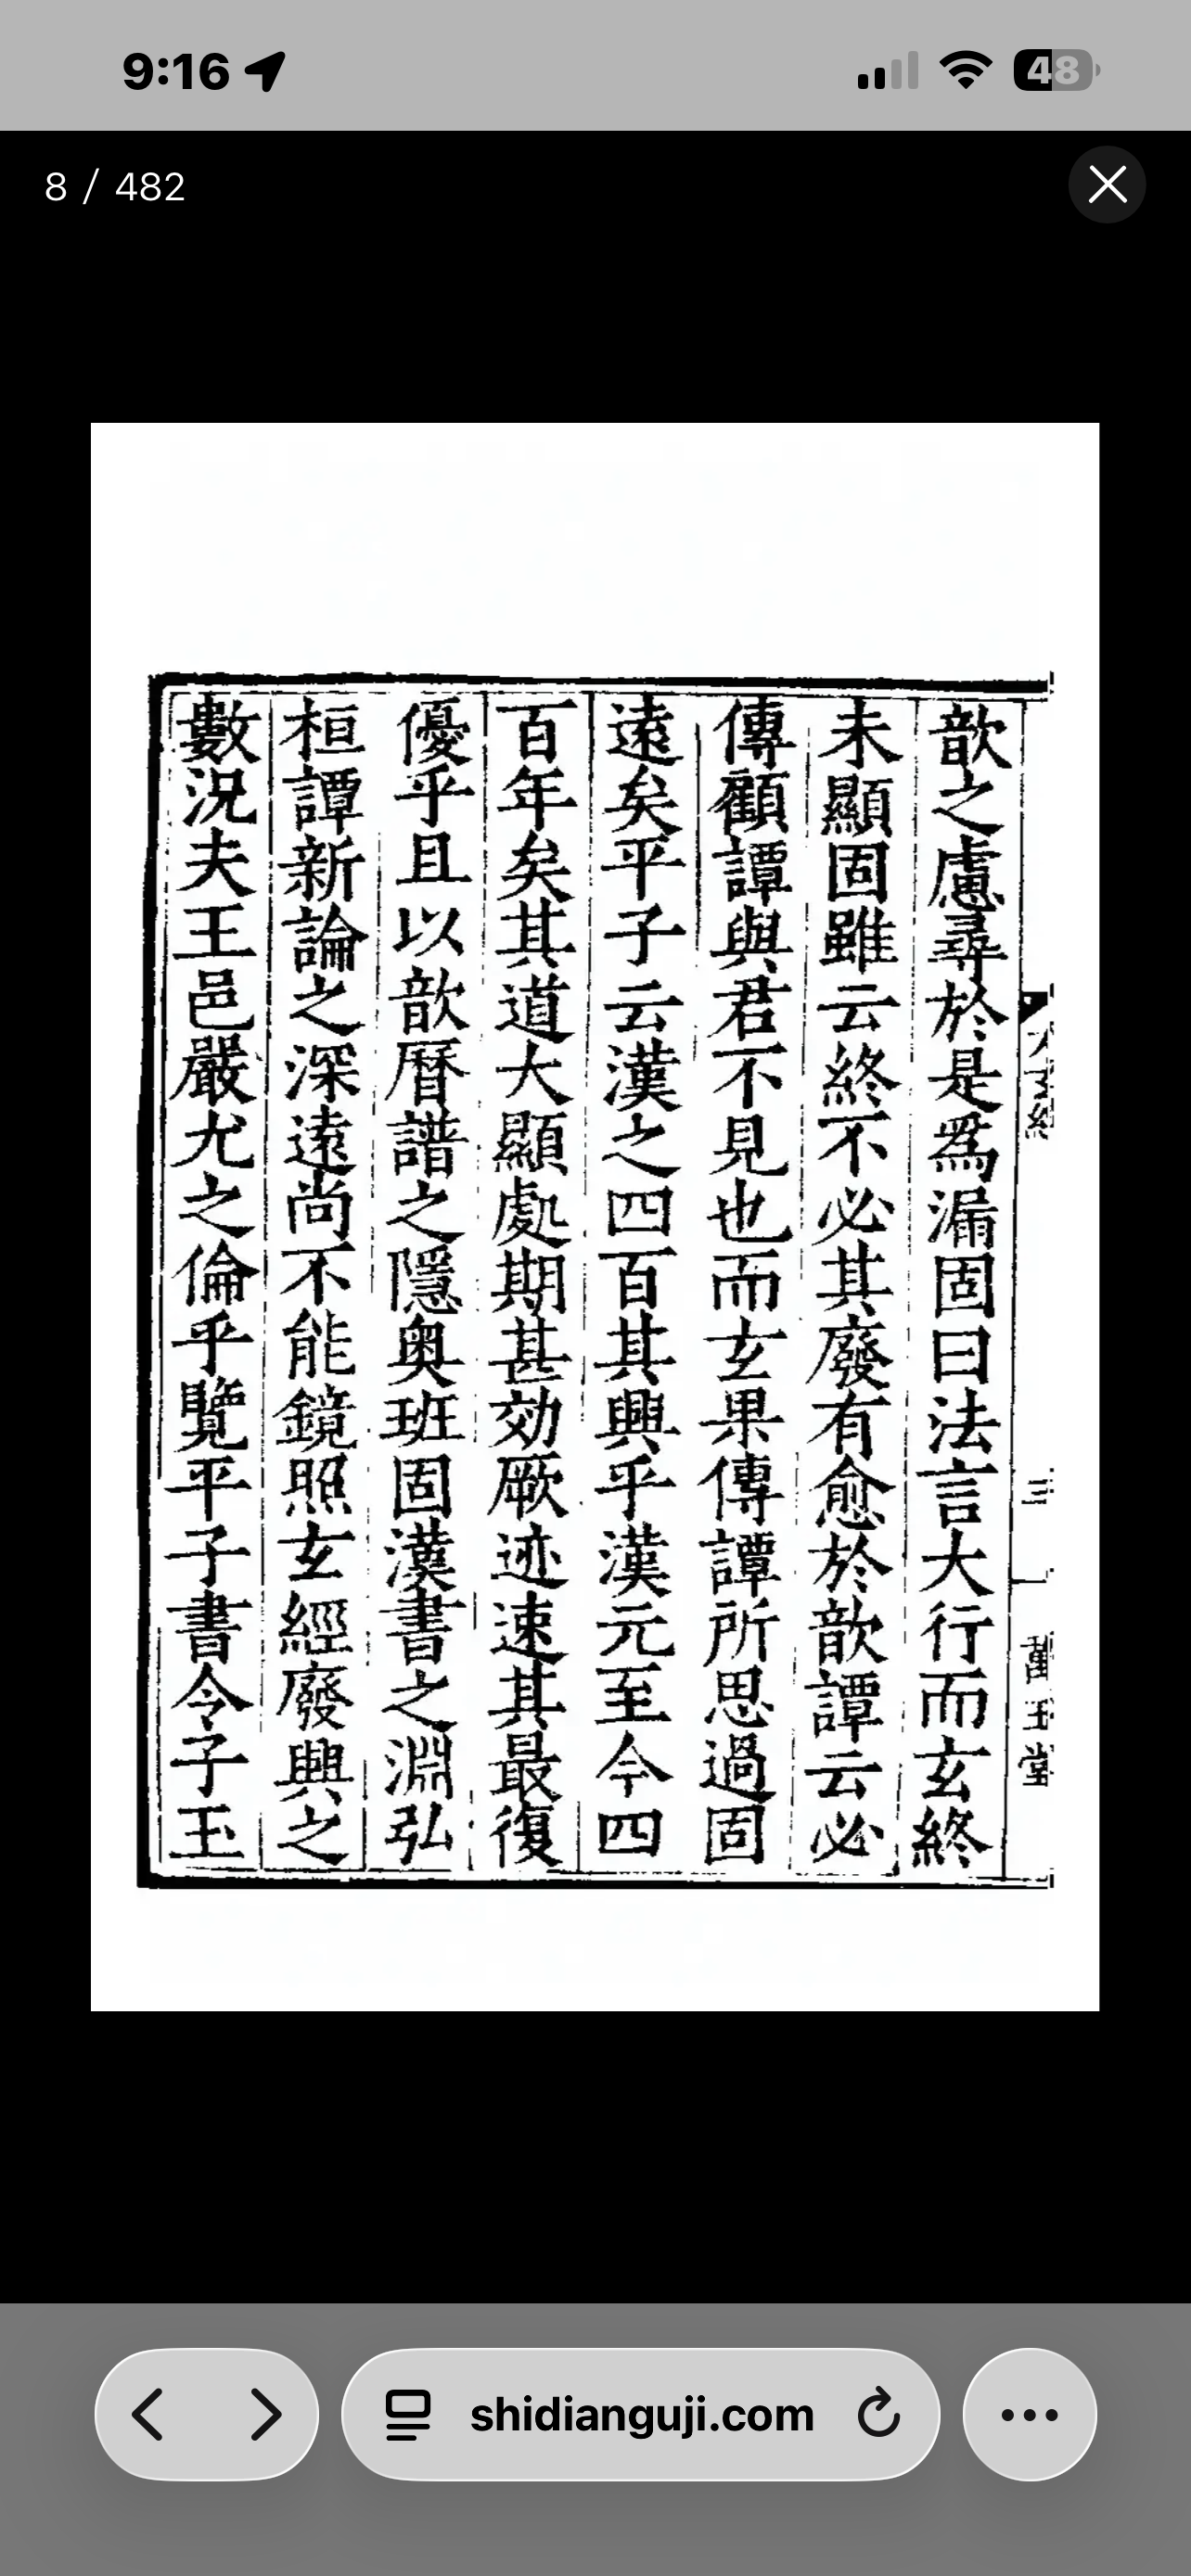 9:16
48
8 / 482
歆之慮尋於是爲漏固曰法言大行而玄終
未顯固雖云終不必其廢有愈於歆譚云必
傳顧譚與君不見也而玄果傳譚所思過固
遠矣平子云漢之四百其興乎漢元至今四
百年矣其道大顯處期甚効厥迹速其最復
優乎且以歆曆譜之隱奥班固漢書之淵弘
桓譚新論之深遠尚不能鏡照玄經廢興之
數況夫王邑嚴尤之倫乎覽平子書令子玉
shidianguji.com